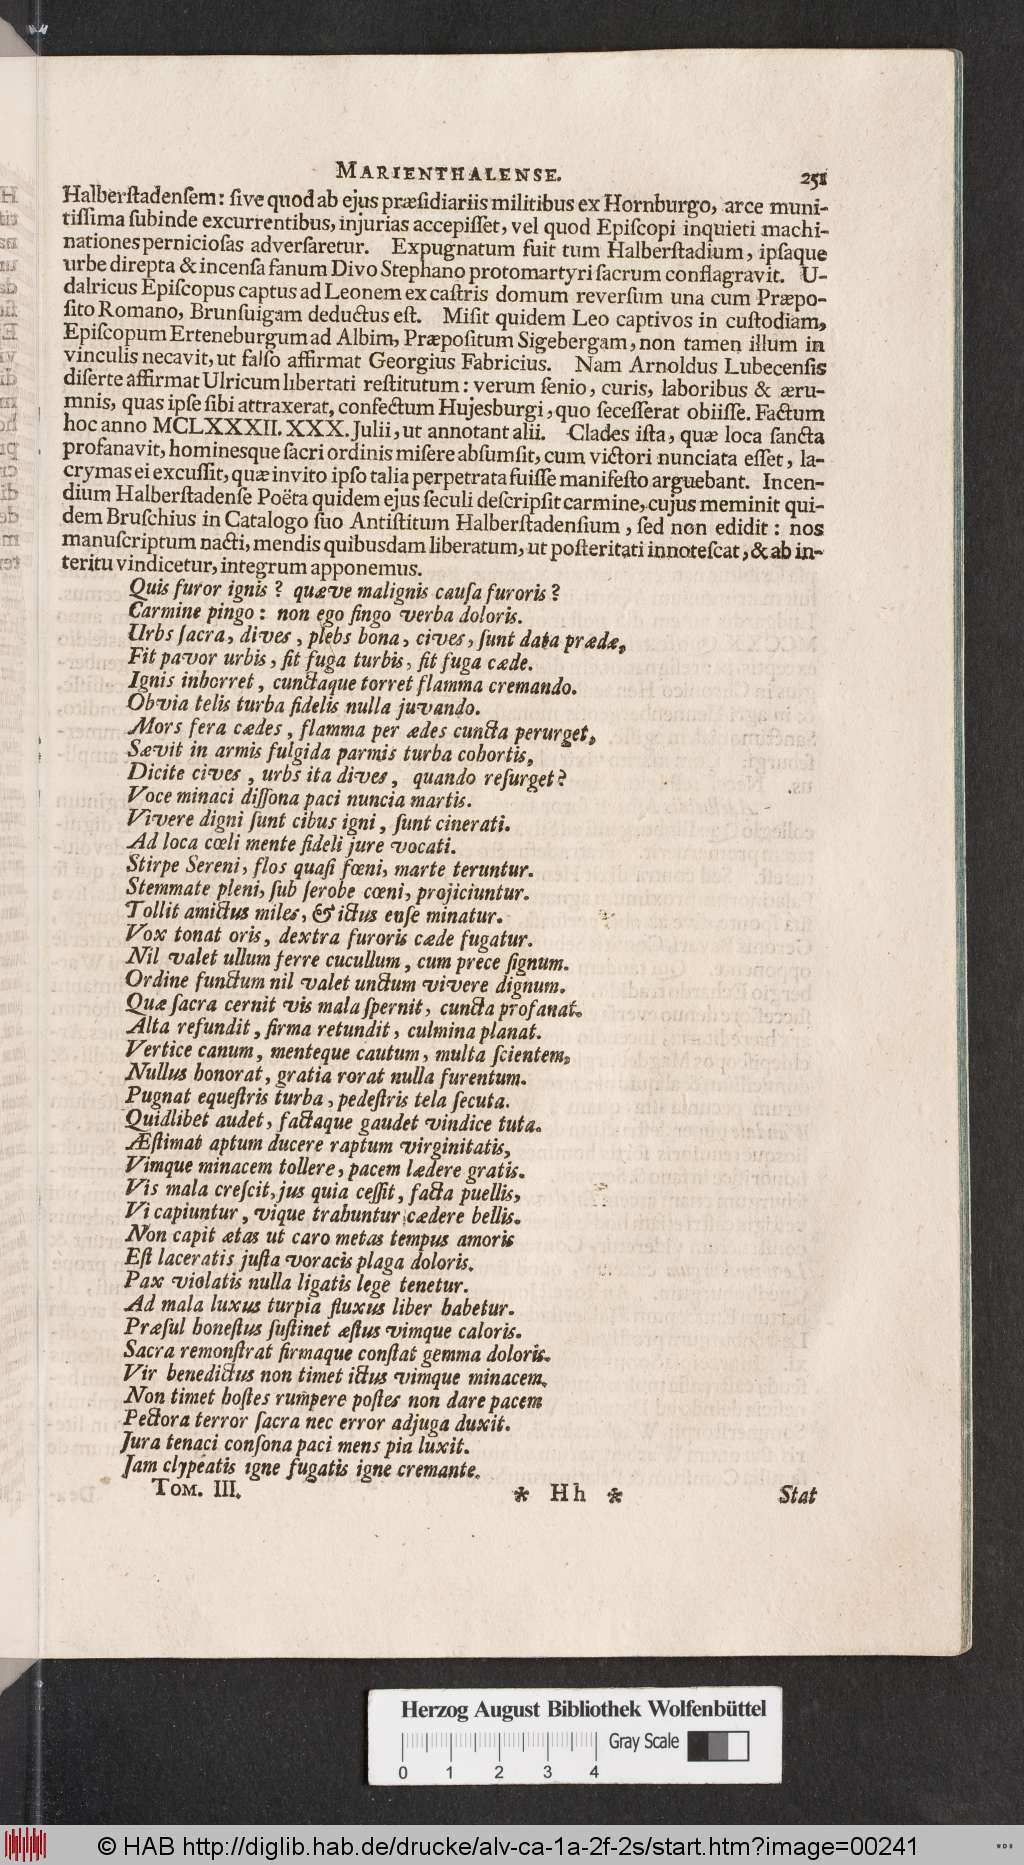 MARIENTHALENSE. 251
Halberſtadenſem: ſive quod ab ejus præſidiariis militibus ex Hornburgo, arce muni-
tiſſima ſubinde excurrentibus, injurias accepiſſet, vel quod Epiſcopi inquieti machi-
nationes pernicioſas adverſaretur. Expugnatum fuit tum Halberſtadium, ipſaque
urbe direpta & incenſa fanum Divo Stephano protomartyri ſacrum conflagravit. U-
dalricus Epiſcopus captus ad Leonem ex caſtris domum reverſum una cum Præpo-
ſito Romano, Brunſuigam deductus eſt. Miſit quidem Leo captivos in cuſtodiam,
Epiſcopum Erteneburgum ad Albim, Præpoſitum Sigebergam, non tamen illum in
vinculis necavit, ut falſo affirmat Georgius Fabricius. Nam Arnoldus Lubecenſis
diſerte affirmat Ulricum libertati reſtitutum: verum ſenio, curis, laboribus & æru-
mnis, quas ipſe ſibi attraxerat, confectum Hujesburgi, quo ſeceſſerat obiiſſe. Factum
hoc anno MCLXXXII. XXX. Julii, ut annotant alii. Clades iſta, quæ loca ſancta
profanavit, hominesque ſacri ordinis miſere abſumſit, cum victori nunciata eſſet, la-
crymas ei excuſſit, quæ invito ipſo talia perpetrata fuiſſe manifeſto arguebant. Incen-
dium Halberſtadenſe Poëta quidem ejus ſeculi deſcripſit carmine, cujus meminit qui-
dem Bruſchius in Catalogo ſuo Antiſtitum Halberſtadenſium, ſed non edidit: nos
manuſcriptum nacti, mendis quibusdam liberatum, ut poſteritati innoteſcat, & ab in-
teritu vindicetur, integrum apponemus.
Quis furor ignis? quæve malignis cauſa furoris?
Carmine pingo: non ego fingo verba doloris.
Urbs ſacra, dives, plebs bona, cives, ſunt data prædæ,
Fit pavor urbis, fit fuga turbis, fit fuga cæde.
Ignis inhorret, cunctaque torret flamma cremando.
Obvia telis turba fidelis nulla juvando.
Mors fera cædes, flamma per ædes cuncta perurget,
Sævit in armis fulgida parmis turba cohortis,
Dicite cives, urbs ita dives, quando reſurget?
Voce minaci diſſona paci nuncia martis.
Vivere digni ſunt cibus igni, ſunt cinerati.
Ad loca cœli mente fideli jure vocati.
Stirpe Sereni, flos quaſi fœni, marte teruntur.
Stemmate pleni, ſub ſerobe cœni, projiciuntur.
Tollit amictus miles, & ictus enſe minatur.
Vox tonat oris, dextra furoris cæde fugatur.
Nil valet ullum ferre cucullum, cum prece ſignum.
Ordine functum nil valet unctum vivere dignum.
Quæ ſacra cernit vis mala ſpernit, cuncta profanat.
Alta refundit, firma retundit, culmina planat.
Vertice canum, menteque cautum, multa ſcientem,
Nullus honorat, gratia rorat nulla furentum.
Pugnat equeſtris turba, pedeſtris tela ſecuta.
Quidlibet audet, factaque gaudet vindice tuta.
Æſtimat aptum ducere raptum virginitatis,
Vimque minacem tollere, pacem lædere gratis.
Vis mala creſcit, jus quia ceſſit, facta puellis,
Vi capiuntur, vique trahuntur cædere bellis.
Non capit ætas ut caro metas tempus amoris
Eſt laceratis juſta voracis plaga doloris.
Pax violatis nulla ligatis lege tenetur.
Ad mala luxus turpia fluxus liber habetur.
Præſul honeſtus ſuſtinet æſtus vimque caloris.
Sacra remonſtrat firmaque conſtat gemma doloris.
Vir benedictus non timet ictus vimque minacem,
Non timet hoſtes rumpere poſtes non dare pacem
Pectora terror ſacra nec error adjuga duxit.
Jura tenaci conſona paci mens pia luxit.
Jam clypeatis igne fugatis igne cremante.
TOM. III. * Hh * Stat
Herzog August Bibliothek Wolfenbüttel
Gray Scale
0 1 2 3 4
© HAB http://diglib.hab.de/drucke/alv-ca-1a-2f-2s/start.htm?image=00241